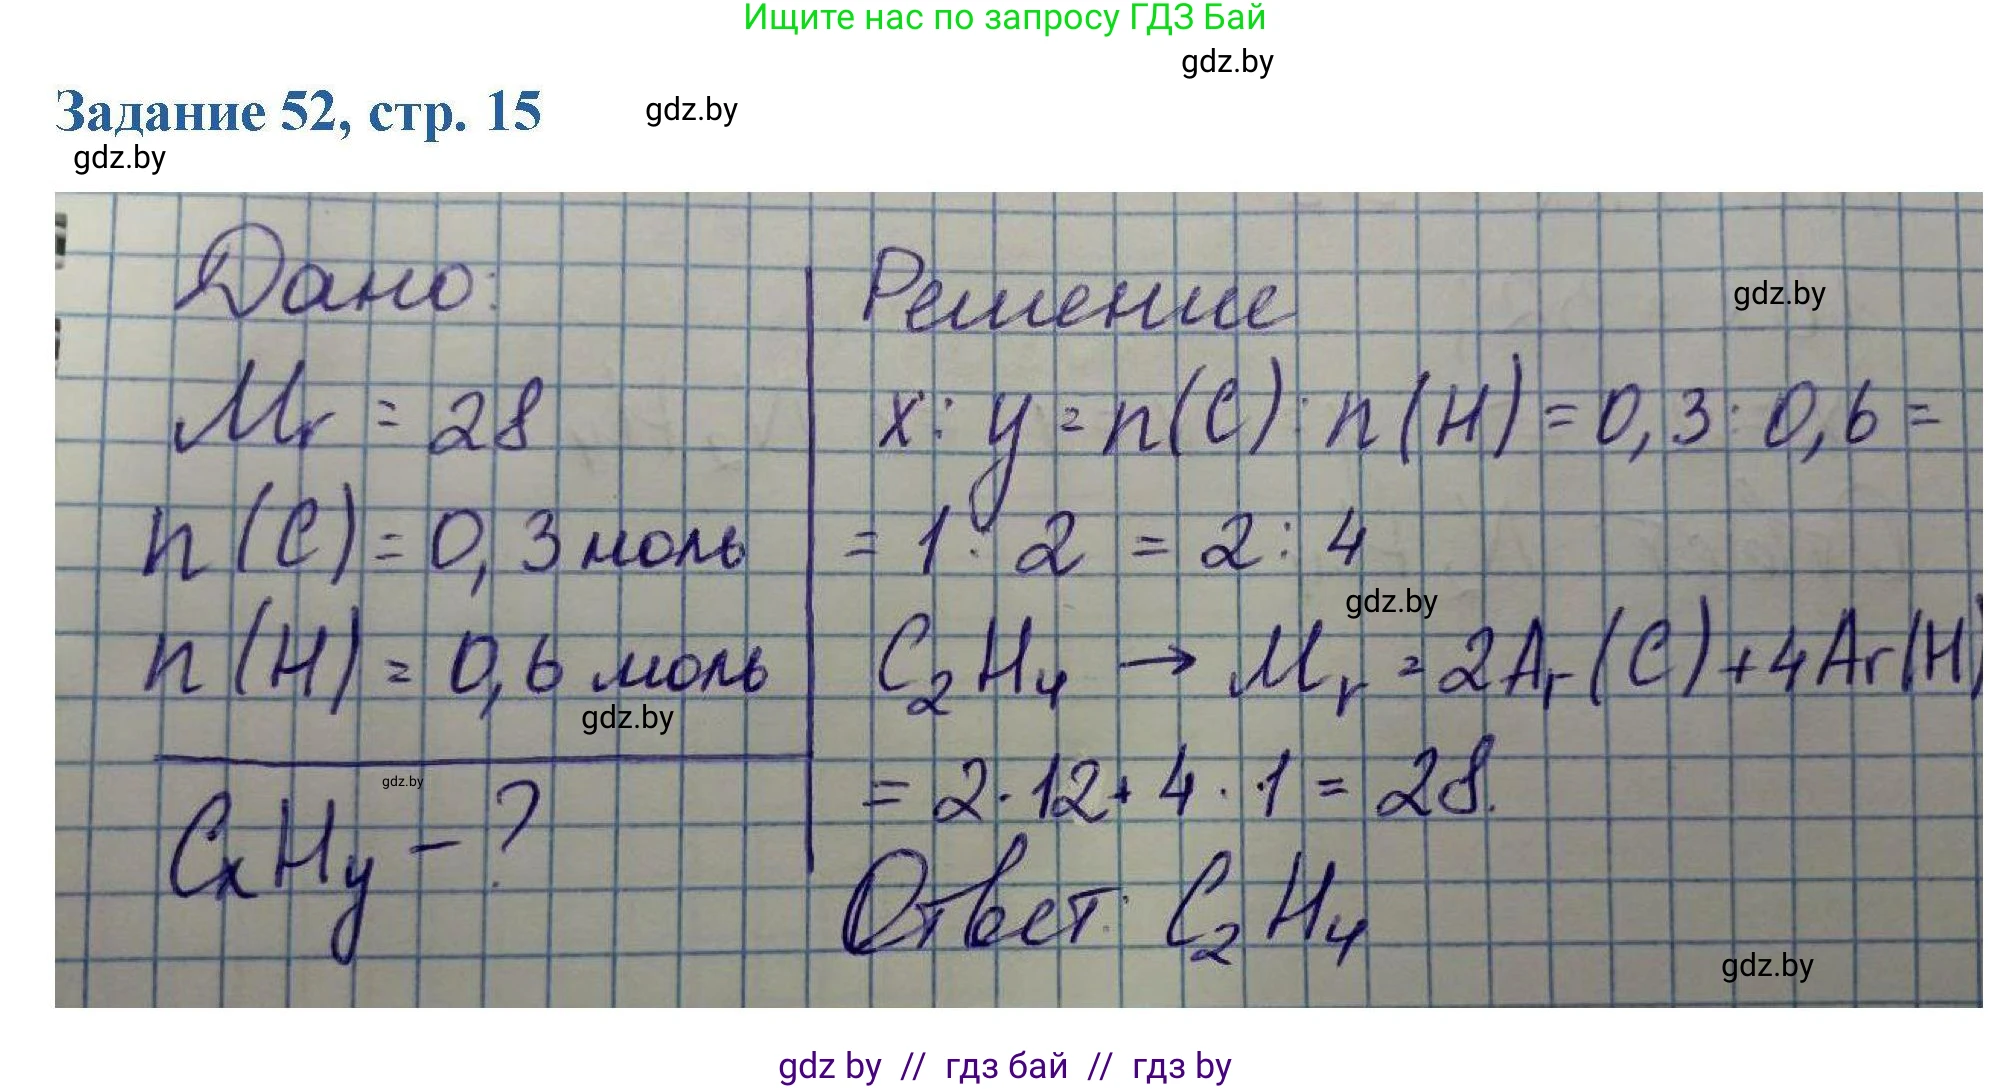 Ищите нас по запросу ГДЗ Бай
gdz.by
Задание 52, стр. 15
gdz.by
gdz.by
Дано:
Mr = 28
n(C) = 0,3 моль
n(H) = 0,6 моль
gdz.by
gdz.by
CxHy - ?
Решение
gdz.by
x : y = n(C) : n(H) = 0,3 : 0,6 =
= 1 : 2 = 2 : 4
gdz.by
C2H4 → Mr = 2Ar(C) + 4Ar(H)
= 2·12 + 4·1 = 28.
Ответ: C2H4
gdz.by
gdz by // гдз бай // гдз by